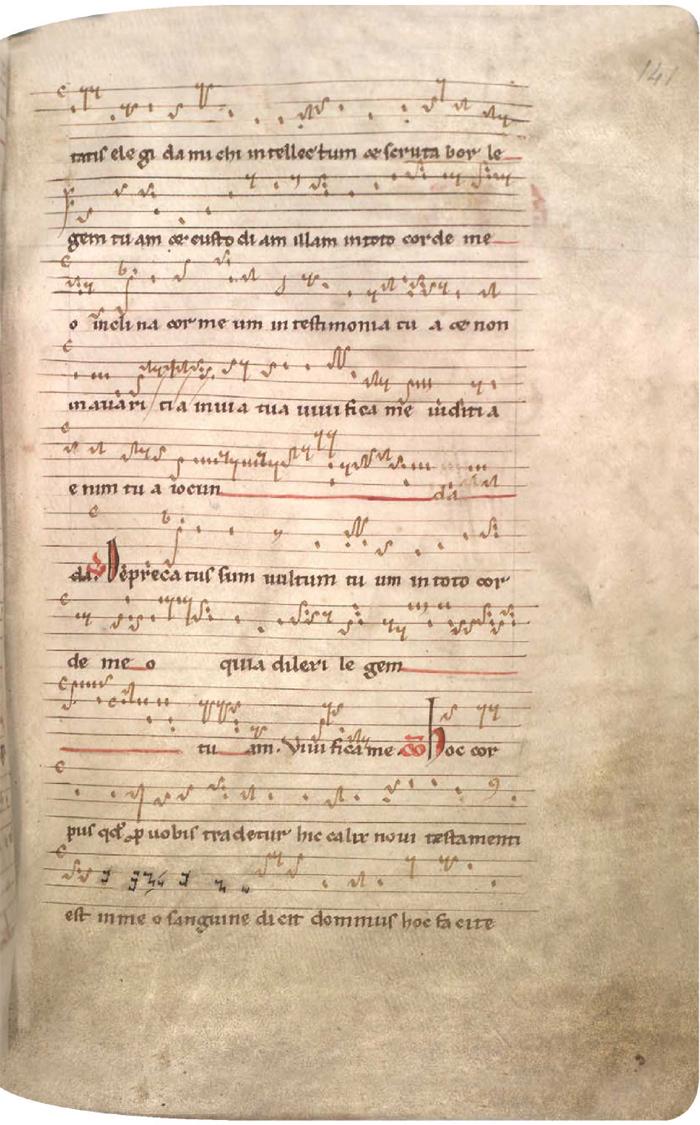 141
tatis ele gi da mi chi in tellec tum et scruta bor le
gem tu am et custo di am illam in toto corde me
o incli na cor me um in testimonia tu a et non
in avari ti a in via tua vivi fica me iuditi a
e nim tu a iocun da
da. V Depreca tus sum vultum tu um in toto cor
de me o quia dilexi le gem
tu am. Vivi fica me. CO Hoc cor
pus qđ p vobis tradetur hic calix novi testamenti
est in me o sanguine dicit dominus hoc fa cite